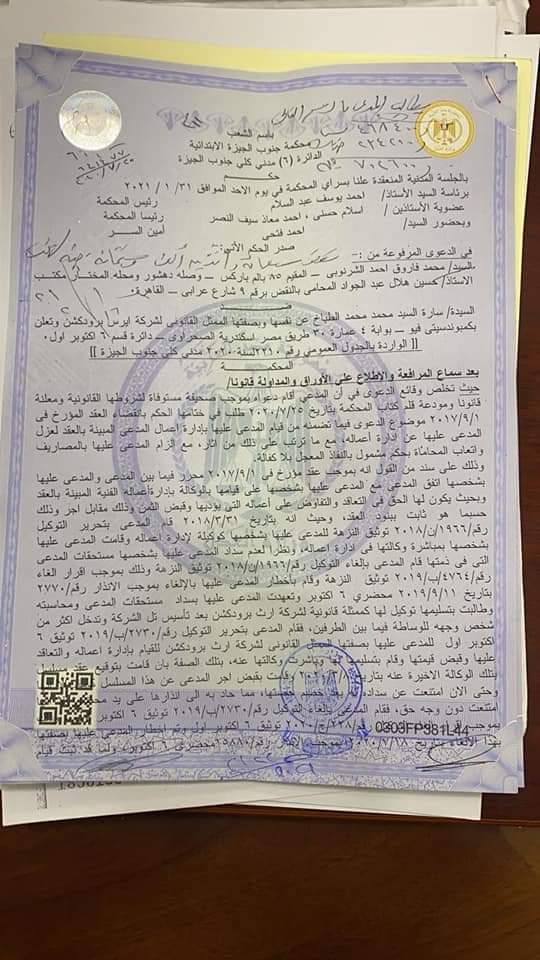 باسم الشعب
محكمة جنوب الجيزة الابتدائية
الدائرة (٦) مدني كلي جنوب الجيزة
حكم
بالجلسة المدنية المنعقدة علنا بسراي المحكمة في يوم الاحد الموافق ٢٠٢١/١/٣١
برئاسة السيد الأستاذ/ احمد يوسف عبد السلام رئيس المحكمة
وعضوية الأستاذين / اسلام حسلى ، احمد معاذ سيف النصر رئيسا المحكمة
وبحضور السيد/ احمد فتحي أمين السر
صدر الحكم الأتي:-
في الدعوى المرفوعة من :-
السيد/ محمد فاروق احمد الشرنوبى - المقيم ٨٥ بالم باركس - وصله دهشور ومحله المختار مكتب
الاستاذ/ حسين هلال عبد الجواد المحامى بالنقض برقم ٩ شارع عرابى - القاهرة.
السيدة/ سارة السيد محمد محمد الطباخ عن نفسها وبصفتها الممثل القانونى لشركة ايرس برودكشن وتعلن
بكمبوندسيتى فيو - بوابة ٤ عمارة ٣٠ طريق مصر اسكندرية الصحراوى - دائرة قسم ٦ اكتوبر اول
[[ الواردة بالجدول العمومي رقم ٢٢١٠ لسنة ٢٠٢٠ مدني كلي جنوب الجيزة ]]
المحكمة
بعد سماع المرافعة والإطلاع على الأوراق والمداولة قانونا/
حيث تخلص وقائع الدعوى في أن المدعي أقام دعواه بموجب صحيفة مستوفاة لشروطها القانونية ومعلنة
قانونا ومودعة قلم كتاب المحكمة بتاريخ ٢٠٢٠/٧/٢٥ طلب في ختامها الحكم بانقضاء العقد المؤرخ في
٢٠١٧/٩/١ موضوع الدعوى فيما تضمنه من قيام المدعي عليها بإدارة اعمال المدعى المبينة بالعقد لعزل
المدعى عليها عن ادارة أعماله، مع ما ترتب على ذلك من اثار، مع الزام المدعى عليها بالمصاريف
واتعاب المحاماة بحكم مشمول بالنفاذ المعجل بلا كفالة.
وذلك على سند من القول انه بموجب عقد مؤرخ في ٢٠١٧/٩/١ محرر فيما بين المدعى والمدعى عليها
بشخصها اتفق المدعى مع المدعى عليها بشخصها على قيامها بالوكالة بإدارة اعماله الفنية المبينة بالعقد
وبحيث يكون لها الحق فى التعاقد والتفاوض على أعماله التى يؤديها وقبض الثمن وذلك مقابل اجر وذلك
حسبما هو ثابت ببنود العقد، وحيث انه بتاريخ ٢٠١٨/٣/٣١ قام المدعى بتحرير التوكيل
رقم/١٩٦٦/ن/٢٠١٨ توثيق النزهة للمدعى عليها بشخصها كوكيلة لإدارة اعماله وقامت المدعى عليها
بشخصها بمباشرة وكالتها فى ادارة اعماله، ونظرا لعدم سداد المدعى عليها بشخصها مستحقات المدعى
التى فى ذمتها قام المدعى بإلغاء التوكيل رقم/١٩٦٦/ن/٢٠١٨ توثيق النزهة وذلك بموجب اقرار الغاء
رقم/٤٧٦٤/ب/٢٠١٩ توثيق النزهة وقام بأخطار المدعى عليها بالإلغاء بموجب الانذار رقم/٢٧٧٠
بتاريخ ٢٠١٩/٩/١١ محضري ٦ اكتوبر وتعهدت المدعى عليها بسداد مستحقات المدعى ومحاسبته
وطالبت بتسليمها توكيل لها كممثلة قانونية لشركة ارث برودكشن بعد تأسيس تل الشركة وتدخل اكثر من
شخص وجهه للوساطة فيما بين الطرفين، فقام المدعى بتحرير التوكيل رقم/٢٧٣٠/ب/٢٠١٩ توثيق ٦
اكتوبر اول للمدعى عليها بصفتها الممثل القانونى لشركة ارث برودكشن للقيام بإدارة اعماله والتعاقد
عليها وقبض قيمتها وقام بتسليمها لها وباشرت وكالتها عنه، بتلك الصفة بان قامت بتوقيع عقد مسلسل
بتلك الوكالة الاخيرة عنه بتاريخ قامت بقبض اجر المدعى عن هذا المسلسل
وحتى الان امتنعت عن سداده مما حاد به الى انذارها على يد
امتنعت دون وجه حق، فقام المدعى بإلغاء التوكيل رقم/٢٧٣٠/ب/٢٠١٩ توثيق ٦ اكتوبر
توثيق ٦ اكتوبر اول وتم اخطار المدعى عليها بصفتها
بهذا الالغاء بتاريخ محضري ٦ اكتوبر، ولما قد ثبت قيام
0303FP381L44